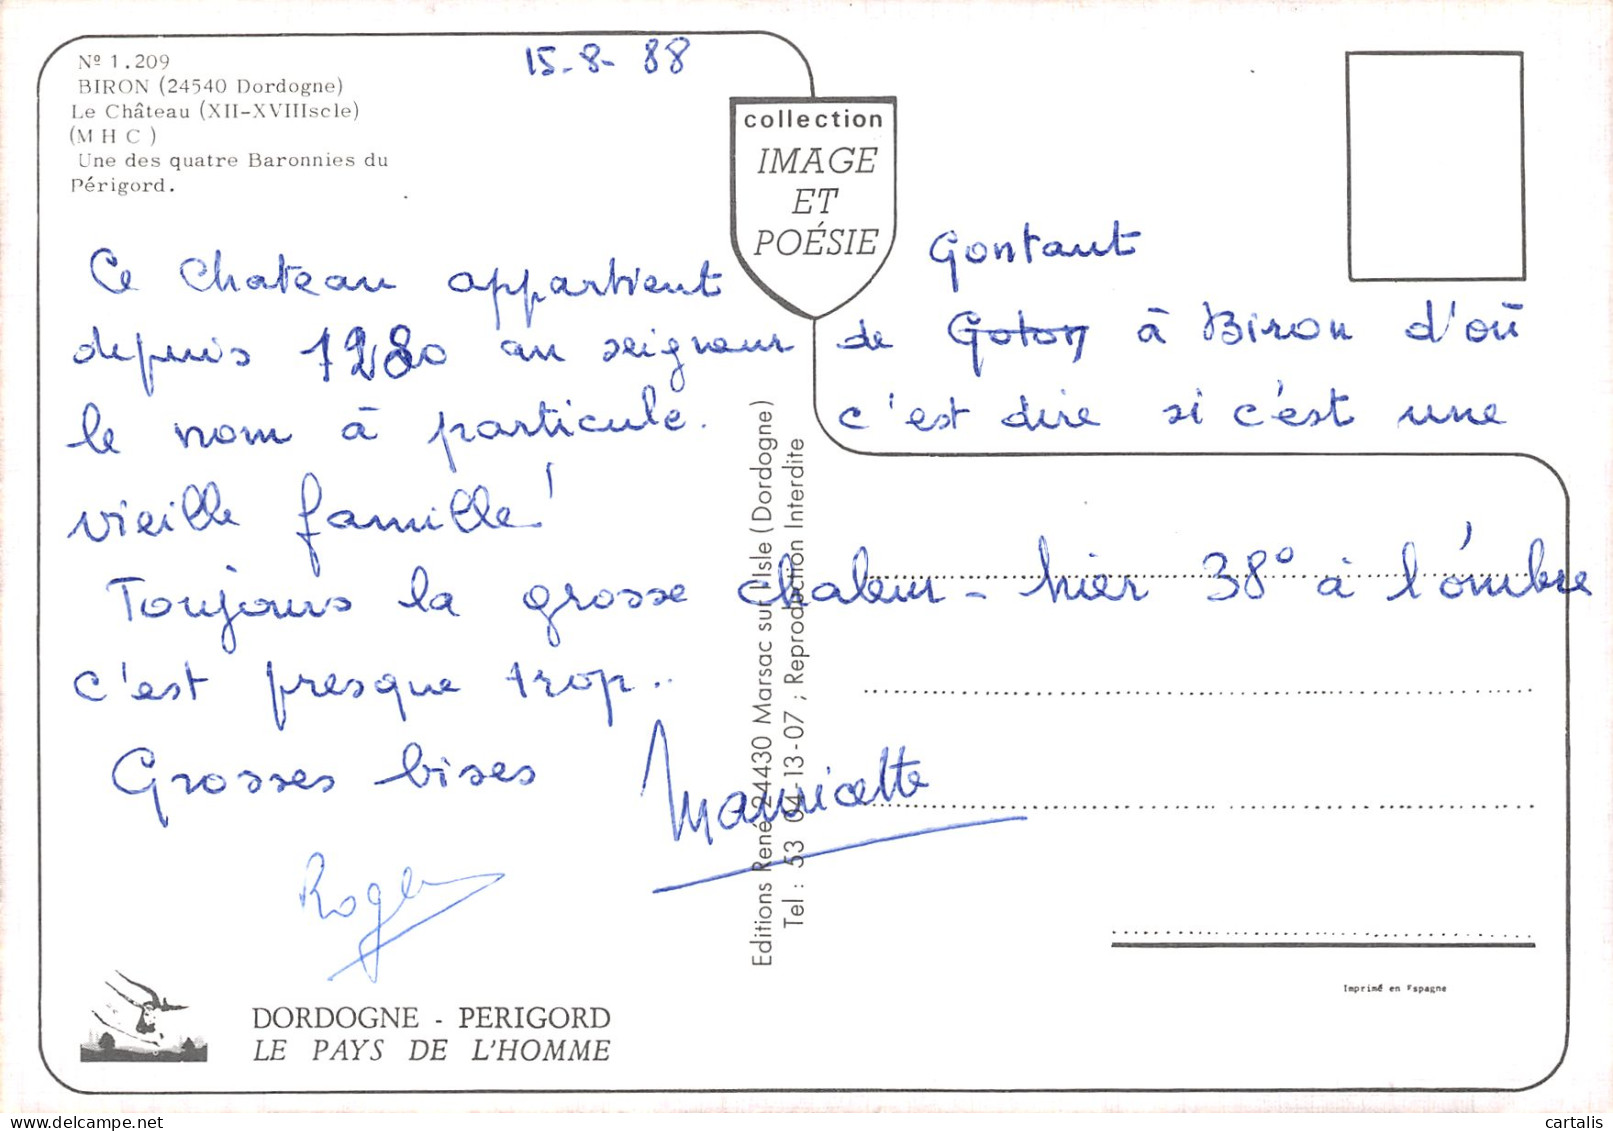 Nº 1.209
BIRON (24540 Dordogne)
Le Château (XII-XVIIIscle)
(M H C )
Une des quatre Baronnies du
Périgord.
15-8-88
collection
IMAGE
ET
POÉSIE
Gontaut
Ce Chateau appartient
depuis 1280 au seigneur de Goton à Biron d'où
le nom à particule. c'est dire si c'est une
vieille famille!
Toujours la grosse chaleur - hier 38° à l'ombre
c'est presque trop..
Grosses bises Mauricette
Roger
Editions René 24430 Marsac sur l'Isle (Dordogne)
Tel : 53 04-13-07 ; Reproduction Interdite
Imprimé en Espagne
DORDOGNE - PERIGORD
LE PAYS DE L'HOMME
cartalis